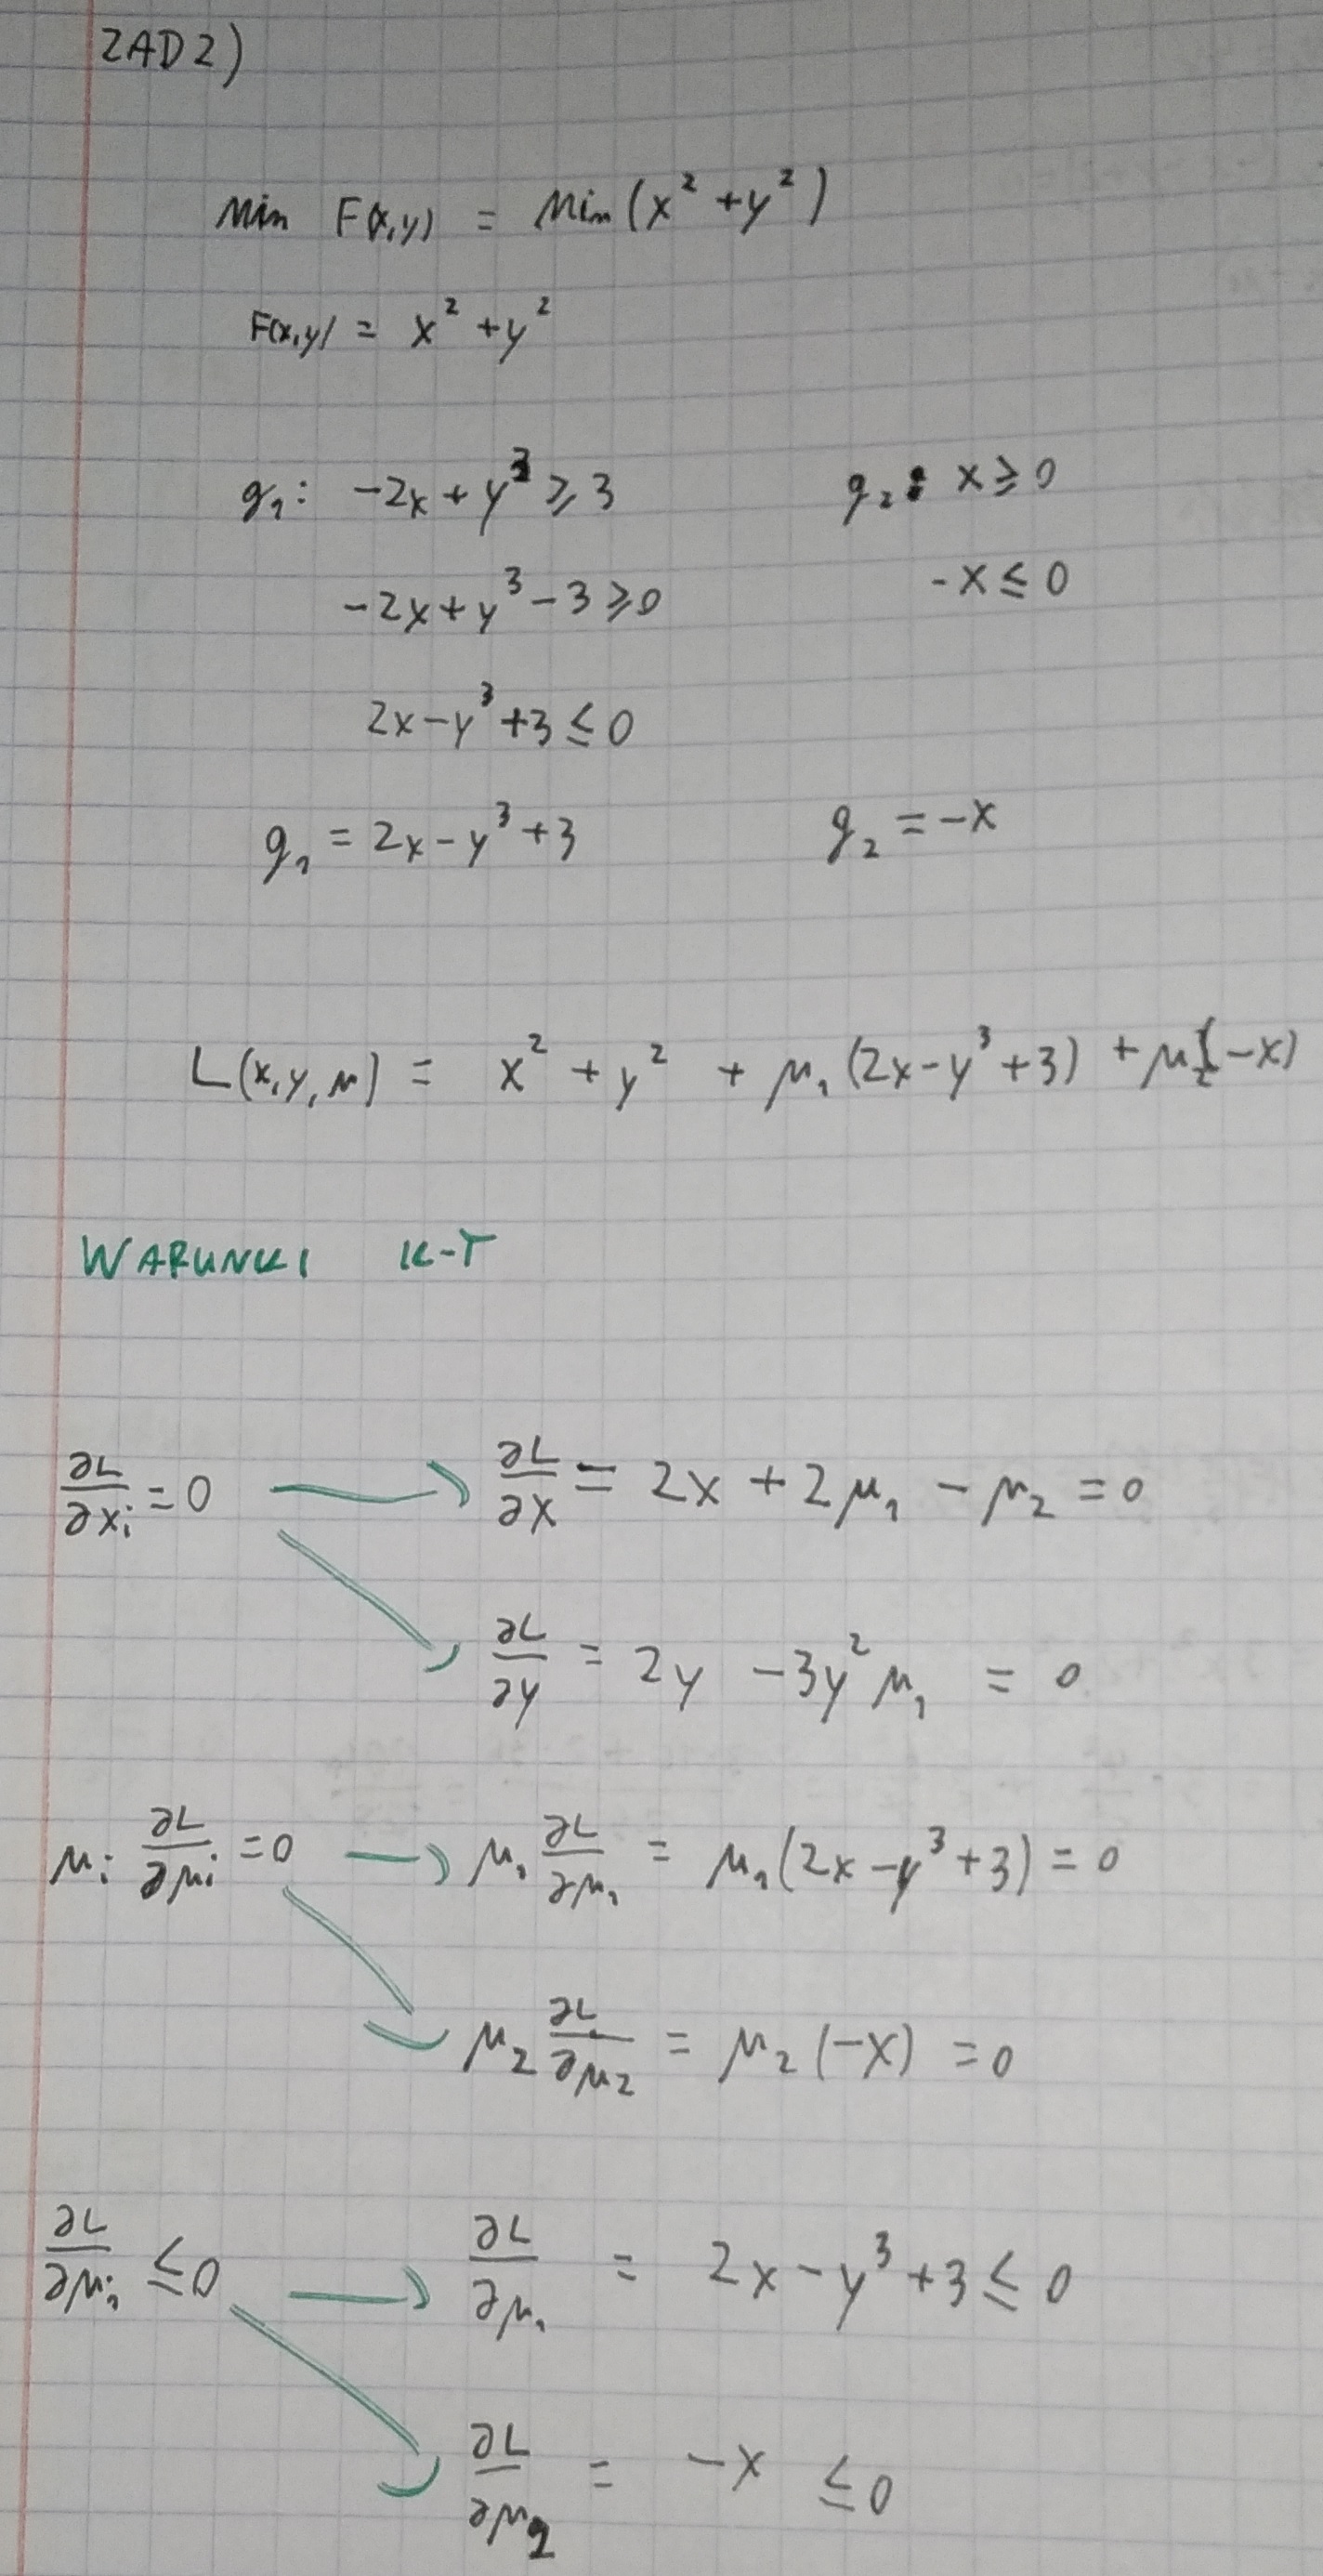 ZAD2)
Min F(x,y) = Min(x² + y²)
F(x,y) = x² + y²
g₁: -2x + y³ ≥ 3 g₂: x ≥ 0
-2x + y³ - 3 ≥ 0 -x ≤ 0
2x - y³ + 3 ≤ 0
g₁ = 2x - y³ + 3 g₂ = -x
L(x,y,μ) = x² + y² + μ₁(2x - y³ + 3) + μ₂(-x)
WARUNKI K-T
∂L/∂xᵢ = 0 → ∂L/∂x = 2x + 2μ₁ - μ₂ = 0
∂L/∂y = 2y - 3y²μ₁ = 0
μᵢ ∂L/∂μᵢ = 0 → μ₁ ∂L/∂μ₁ = μ₁(2x - y³ + 3) = 0
μ₂ ∂L/∂μ₂ = μ₂(-x) = 0
∂L/∂μᵢ ≤ 0 → ∂L/∂μ₁ = 2x - y³ + 3 ≤ 0
∂L/∂μ₂ = -x ≤ 0